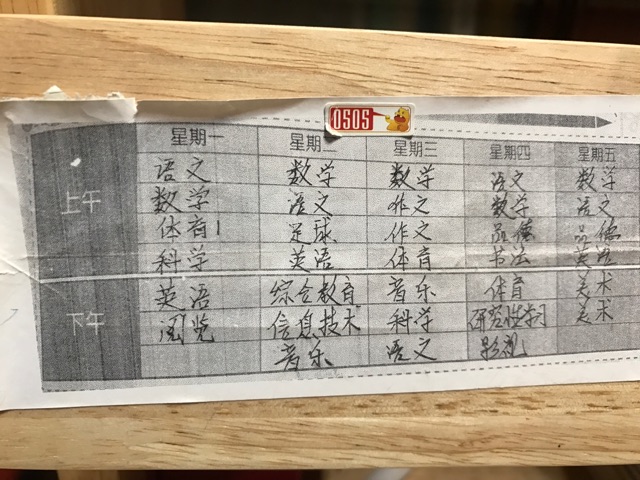 0505
星期一 星期二 星期三 星期四 星期五
上午 语文 数学 数学 语文 数学
数学 语文 作文 数学 语文
体育1 足球 作文 品德 品德
科学 英语 体育 书法 英语
下午 英语 综合教育 音乐 体育 美术
阅览 信息技术 科学 研究性学习 美术
音乐 语文 影视